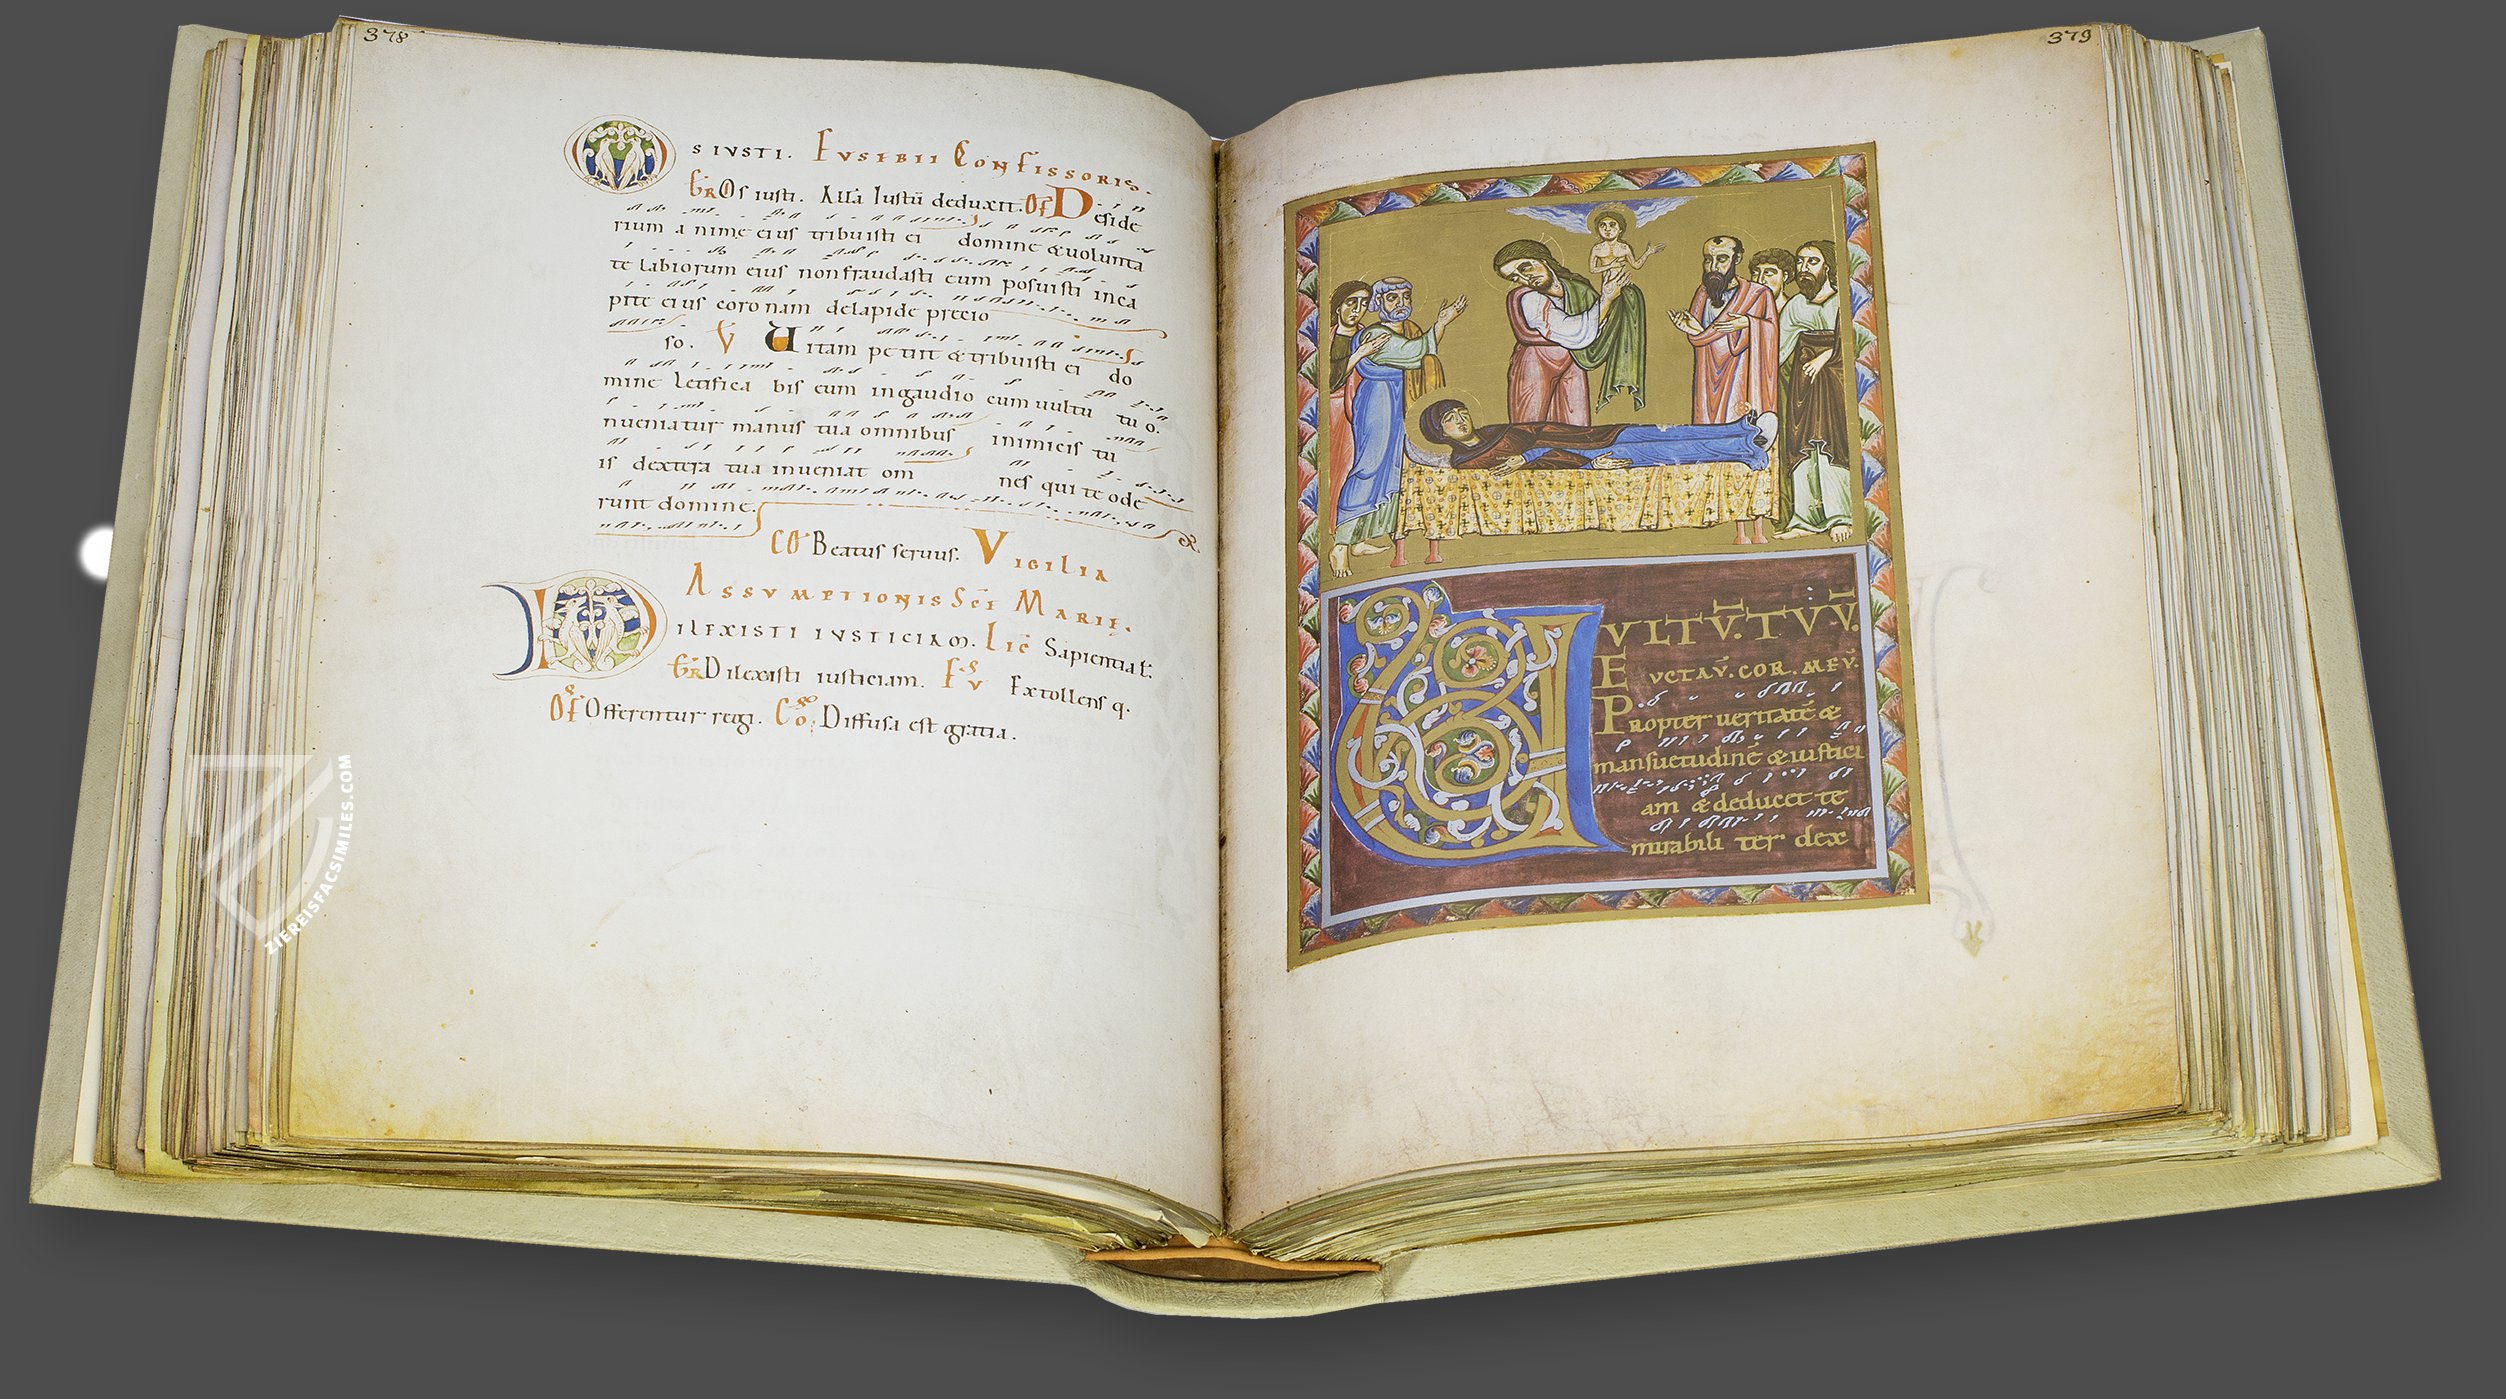 378
OS IVSTI. EVSEBII CONFESSORIS.
GR Os iusti. Alla Iustū deduxit. OF Deside
rium anime eius tribuisti ei domine &uolunta
te labiorum eius nonfraudasti eum posuisti inca
pite eius coronam delapide precio
so. V Uitam petiit &tribuisti ei do
mine letifica bis eum ingaudio cumuultu tuo.
nueniatur manus tua omnibus inimicis tu
is dextera tua inueniat om nes qui te ode
runt domine.
CO Beatus seruus. VIGILIA
ASSVMPTIONIS SCE MARIE.
DILEXISTI IVSTICIAM. Lic Sapientiał.
GR Dilexisti iusticiam. Extollens q.
OF Offerentur regi. Co. Diffusa est gratia.
379
VVLTV̄. TVV̄.
ERVCTAV̄. COR. MEV̄.
Propter ueritatē &
mansuetudinē &iustici
am & deducet te
mirabili ter dex
ZIEREISFACSIMILES.COM